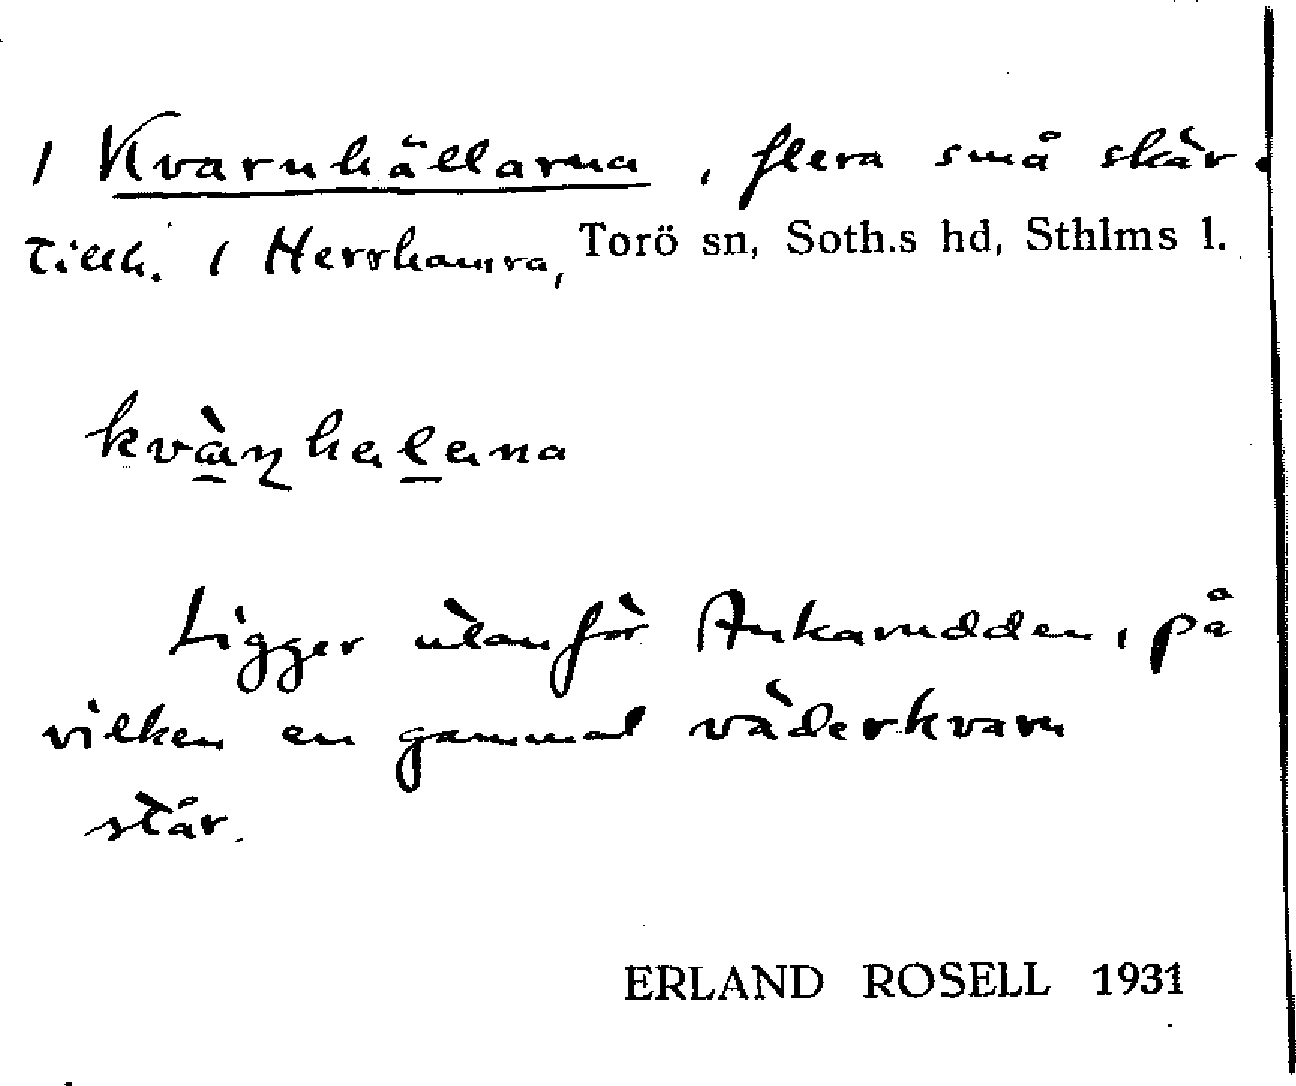 / Kvarnhällarna, flera små skär.
Tillh. / Herrhamra, Torö sn, Soth.s hd, Sthlms l.
kvàɳhalana
Ligger utanför Ankarudden, på
vilken en gammal väderkvarn
står.
ERLAND ROSELL 1931